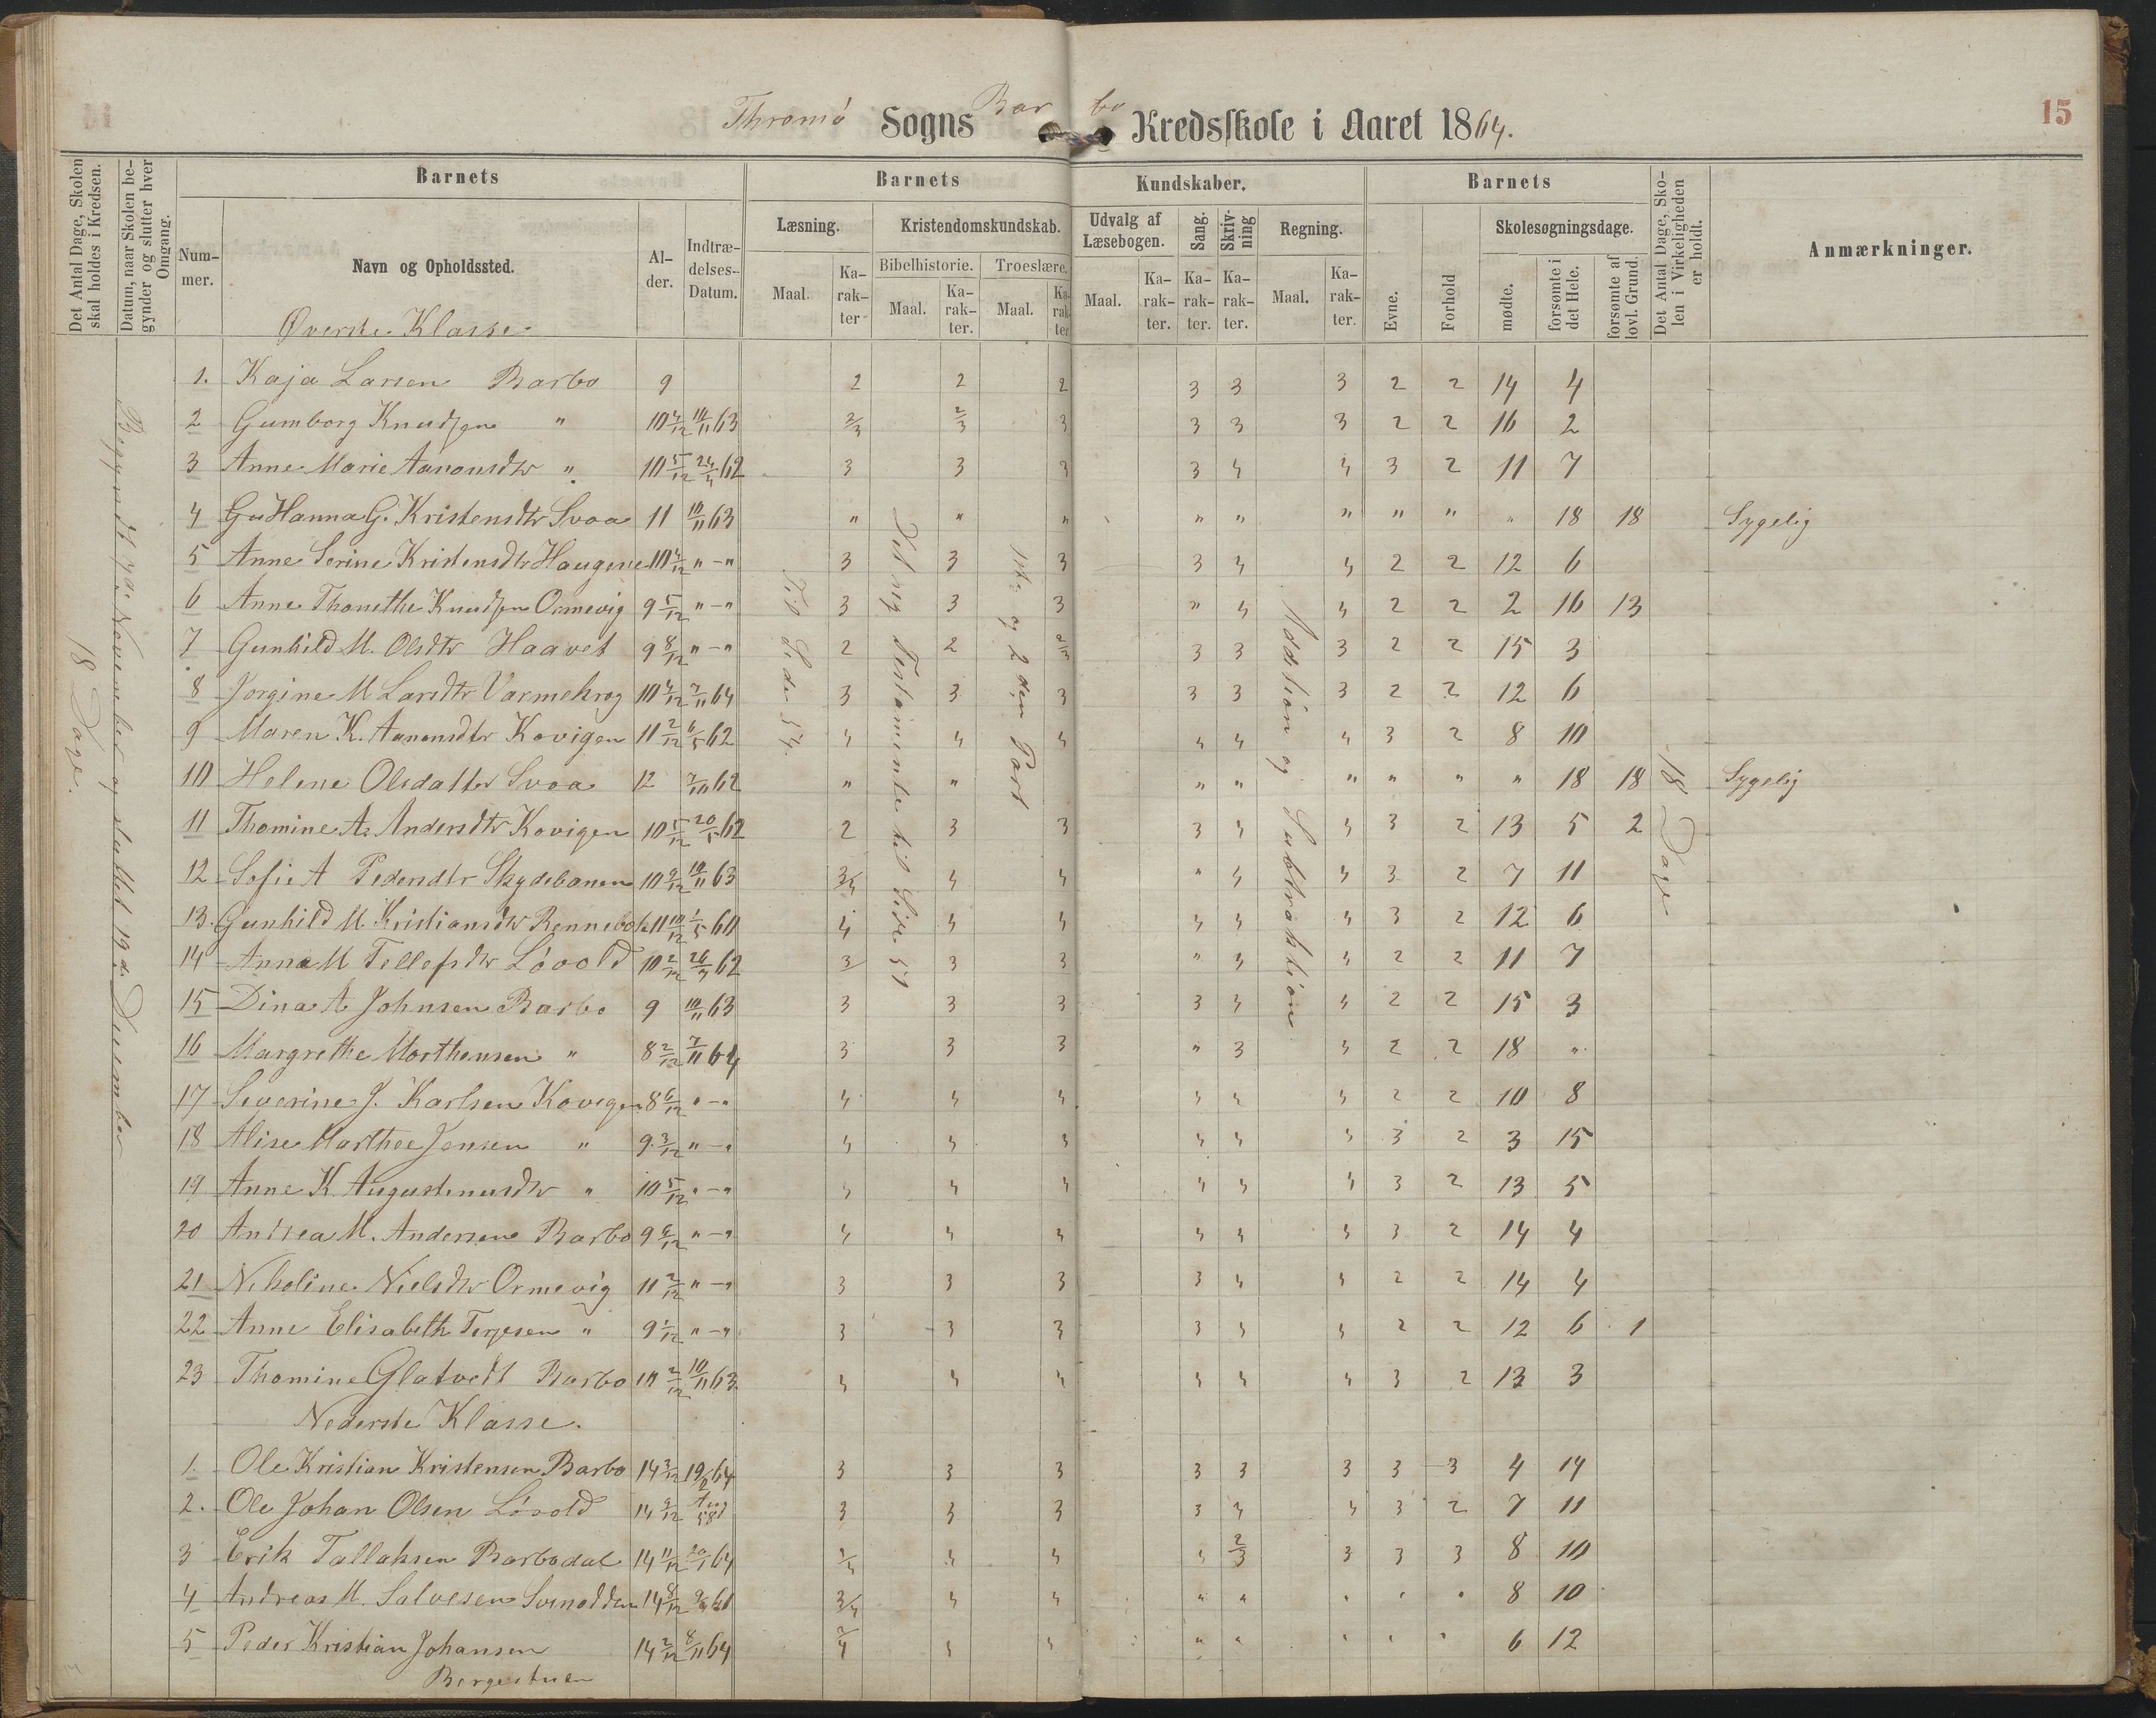 Thromø Sogns Barbo Kredsskole i Aaret 1864.
15
Det Antal Dage, Skolen skal holdes i Kredsen.
Datum, naar Skolen begynder og slutter hver Omgang.
Barnets
Nummer.
Navn og Opholdssted.
Alder.
Indtrædelses-Datum.
Barnets Kundskaber.
Læsning.
Maal.
Karakter
Kristendomskundskab.
Bibelhistorie.
Maal.
Karakter.
Troeslære.
Maal.
Karakter
Udvalg af Læsebogen.
Maal.
Karakter.
Sang.
Karakter.
Skrivning
Karakter.
Regning.
Maal.
Karakter.
Barnets
Evne.
Forhold
Skolesøgningsdage.
mødte.
forsømte i det Hele.
forsømte af lovl. Grund.
Det Antal Dage, Skolen i Virkeligheden er holdt.
Anmærkninger.
18 Dage.
Begyndt November og sluttet 19d. December
Til Side 54.
Det ny Testamente til Side 51
1ste og 2den Part
Addition og Subtraktion
18 Dage
Øverste Klasse
1. Kaja Larsen Barbo 9 2 2 2 3 3 3 2 2 14 4
2 Gumborg Knudsen " 10 4/12 10/11 63 2/3 2/3 3 3 3 3 2 2 16 2
3 Anne Marie Aanonsdtr " 10 5/12 24/4 62 3 3 3 3 4 4 3 2 11 7
4 Hanna G. Kristensdtr Svoa 11 10/11 63 " " " " " " " " " 18 18 Sygelig
5 Anne Serine Kristensdtr Haugene 10 4/12 " - " 3 3 3 3 4 4 2 2 12 6
6 Anne Thonethe Knudsen Ormevig 9 5/12 " - " 3 3 3 " 4 4 2 2 2 16 13
7 Gunhild M. Olsdtr Haavet 9 8/12 " - " 2 2 2/3 3 3 3 2 2 15 3
8 Jorgine M Larsdtr Varmekrog 10 4/12 7/11 64 3 3 3 3 3 3 2 2 12 6
9 Maren K. Aanonsdtr Kovigen 11 2/12 6/5 62 4 4 4 4 4 4 3 2 8 10
10 Helene Olsdatter Svoa 12 7/10 62 " " " " " " " " 18 18 Sygelig
11 Thomine A. Andersdtr Kovigen 10 5/12 20/5 62 2 3 3 3 4 4 3 2 13 5 2
12 Sofie A Pedersdtr Skydebanen 10 9/12 10/11 63 3/4 4 4 " 4 4 3 2 7 11
13. Gunhild M. Kristiansdtr 11 10/12 1/5 60 4 4 4 4 4 4 3 2 12 6
14 Anna M Tellefsdtr Løvold 10 2/12 26/3 62 3 3 3 " 4 4 2 2 11 7
15 Dina A. Johnsen Barbo 9 10/11 63 3 3 3 3 4 4 2 2 15 3
16 Margrethe Morthensen " 8 2/12 7/11 64 3 3 3 " 3 4 2 2 18 "
17 Severine J. Karlsen Kovigen 8 6/12 " - " 4 4 4 4 4 4 2 2 10 8
18 Alise Marthee Jensen " 9 3/12 " - " 4 4 4 4 4 4 3 2 3 15
19 Anne K. Augustinusdtr " 10 5/12 " - " 4 4 4 4 4 4 3 2 13 5
20 Andrea M. Andersen Barbo 9 6/12 " - " 4 4 4 4 4 4 3 2 14 4
21 Nikoline Nielsdtr Ormevig 11 2/12 " - " 3 3 3 3 4 4 2 2 14 4
22 Anne Elisabeth Terjesen " 9 1/12 " - " 3 3 3 3 4 4 2 2 12 6 1
23 Thomine Glatvedt Barbo 10 2/12 10/11 63 4 4 4 4 4 4 3 2 13 3
Nederste Klasse.
1. Ole Kristian Kristensen Barbo 14 3/12 19/2 64 3 3 3 3 3 3 3 3 4 14
2. Ole Johan Olsen Løvold 14 9/12 Aug 58 3 3 3 3 4 4 3 2 7 11
3 Erik Tallaksen Barbodal 14 11/12 64 4 4 4 2/3 3 3 3 8 10
4 Andreas M. Salvesen 14 8/12 3/4 4 4 " " " " " 8 10
5 Peder Kristian Johansen 14 2/12 8/11 64 4 4 " " " " " 6 12
Bergestuen